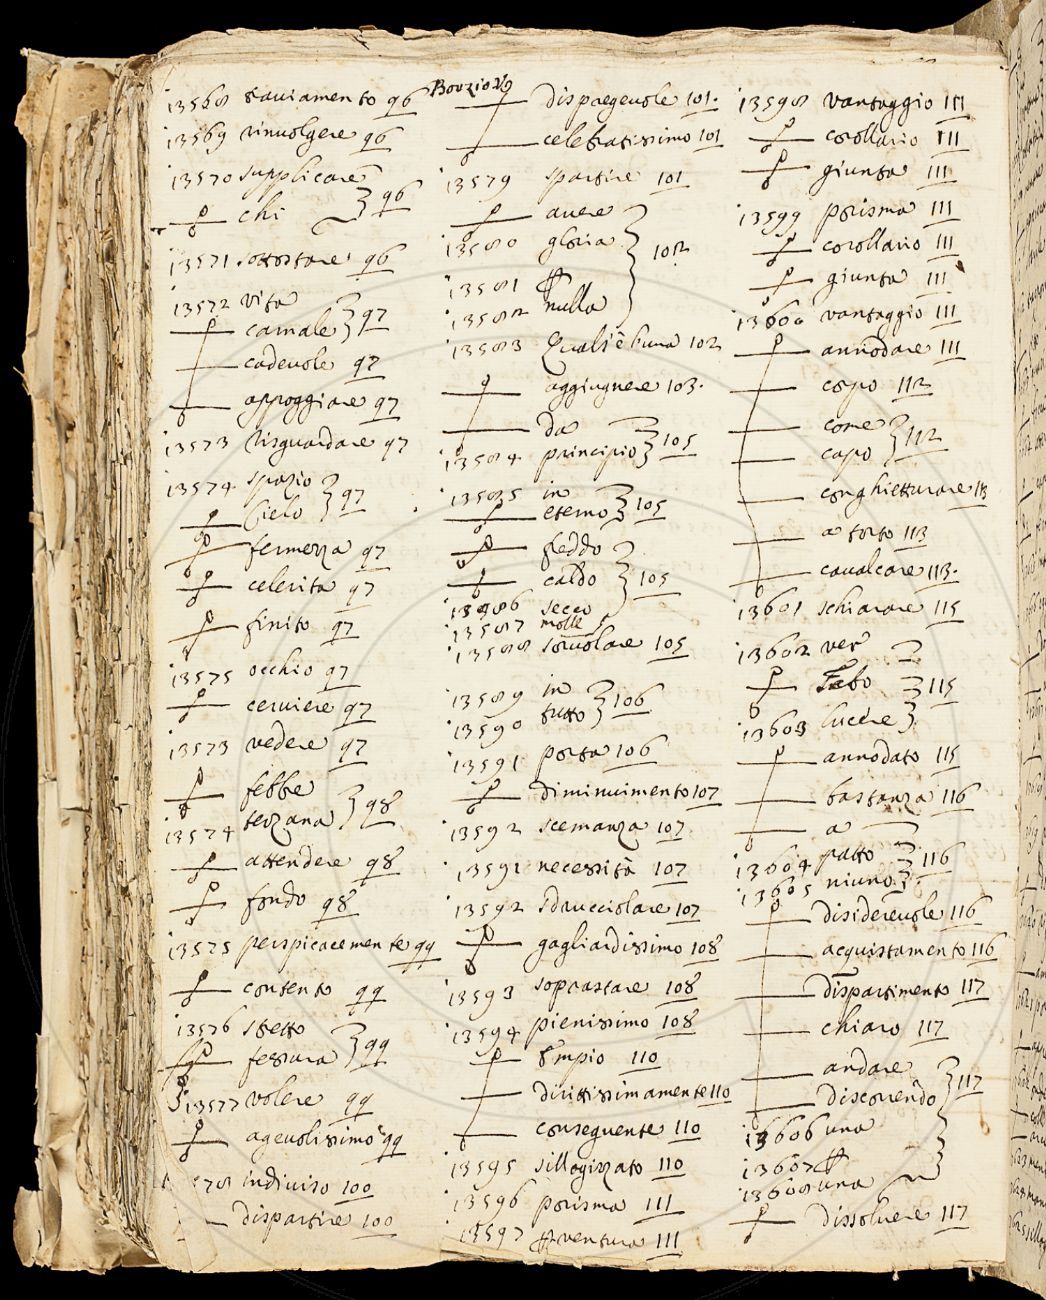 13568 sauiamento 96
13569 rinuolgere 96
13570 supplicare
chi 96
13571 sottostare 96
13572 vita
carnale 97
cadeuole 97
appoggiare 97
13573 risguardare 97
13574 spazio
cielo 97
fermezza 97
celerità 97
finito 97
13575 occhio 97
ceruiere 97
13573 vedere 97
febbre
terzana 98
13574
attendere 98
fondo 98
13575 perspicacemente 99
contento 99
13576 stretto
fessura 99
13577 volere 99
ageuolissimo 99
578 indiuiso 100
dispartire 100
Boezio Vg
dispregeuole 101.
celebratissimo 101
13579 spartire 101
auere
13580 gloria 102
13581
13582 nulla
13583 Qual s'è l'una 102
aggiugnere 103.
da
13584 principio 105
13585 in
eterno 105
freddo
caldo 105
13486 secco
13587 molle
13588 soruolare 105
13589 in
13590 tutto 106
13591 porta 106
diminuimento 107
13592 scemanza 107
13591 necessità 107
13592 sdrucciolare 107
gagliardissimo 108
13593 soprastare 108
13594 pienissimo 108
Empio 110
dirittissimamente 110
conseguente 110
13595 sillogizzato 110
13596 porisma 111
13597 ventura 111
13598 vantaggio 111
corollario 111
giunta 111
13599 porisma 111
corollario 111
giunta 111
13600 vantaggio 111
annodare 111
corpo 112
come
capo 112
conghietturare 113
a torto 113
caualcare 113.
13601 schiarare 115
13602 ver
Febo 115
13603 lucere
annodato 115
bastanza 116
a
13604 patto 116
13605 niuno
disidereuole 116
acquistamento 116
dispartimento 117
chiaro 117
andare
discorrendo 117
13606 una
13607
13608 una
dissoluere 117